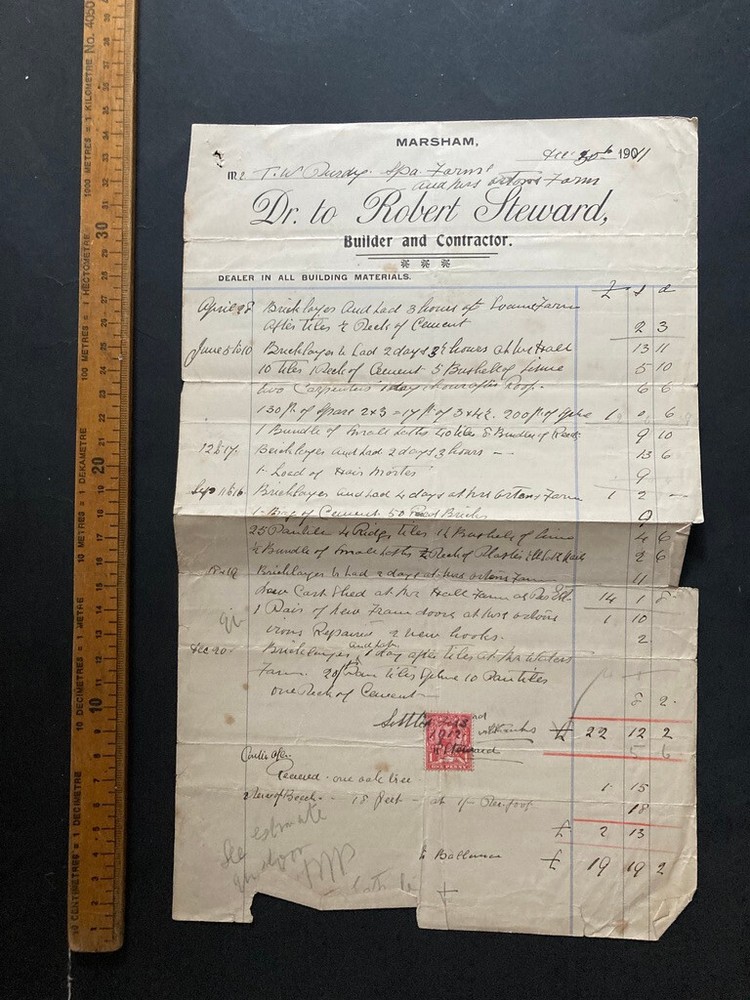 MARSHAM,
Dec 30th 1901
Mr T. W. Purdy. Spa Farm
and Mrs Ortons Farm
Dr. to Robert Steward,
Builder and Contractor.
DEALER IN ALL BUILDING MATERIALS.
£ s d
April 28 Bricklayer And Lad 3 hours at Farm
After tiles ½ Peck of Cement 2 3
June 5 to 10 Bricklayer & Lad 2 days 3½ hours at Hall 13 11
10 tiles 1 Peck of Cement 5 Bushell of lime 5 10
two Carpenters 1 day 1 hour after Roof. 6 6
130 ft. of Spars 2x3 = 17 ft of 3x4½. 200 ft of 1 0 6
1 Bundle of Small Laths 40 tiles & Bundle of Reeds 9 10
12 to 17. Bricklayer and Lad 2 days 3 hours 13 6
1 Load of Hair Morter 9
Sep 11 to 16 Bricklayer and Lad 4 days at Mrs Ortons Farm 1 2 -
1 Bag of Cement 50 Bricks 9
25 Pantiles 4 Ridge tiles 1½ Bushels of lime 4 6
½ Bundle of Small Laths ½ Peck of Plaster 2 6
18 & 19 Bricklayer & Lad 2 days at Mrs Ortons Farm 11
New Cart Shed at Hall Farm as Per 14 1 8
1 Pair of New Frame doors at Mrs Ortons 1 10
irons Repaired 2 new hooks. 2
Dec 20 Bricklayer and Lab 1 day after tiles at
Farm. 20 Plain tiles 10 Pantiles
one Peck of Cement 8 2
Settled
1912 with thanks £ 22 12 2
R Steward 5 6
ONE PENNY
Contra
one oak tree 1 15
2 of Beech 18 feet at 1/- Per foot 18
£ 2 13
See estimate
for door
to Ballance £ 19 19 2
10 CENTIMETRES = 1 DECIMETRE
10 DECIMETRES = 1 METRE
10 METRES = 1 DEKAMETRE
100 METRES = 1 HECTOMETRE
1000 METRES = 1 KILOMETRE
No. 4050
1 2 3 4 5 6 7 8 9 10 11 12 13 14 15 16 17 18 19 20 21 22 23 24 25 26 27 28 29 30 31 32 33 34 35 36 37 38 39